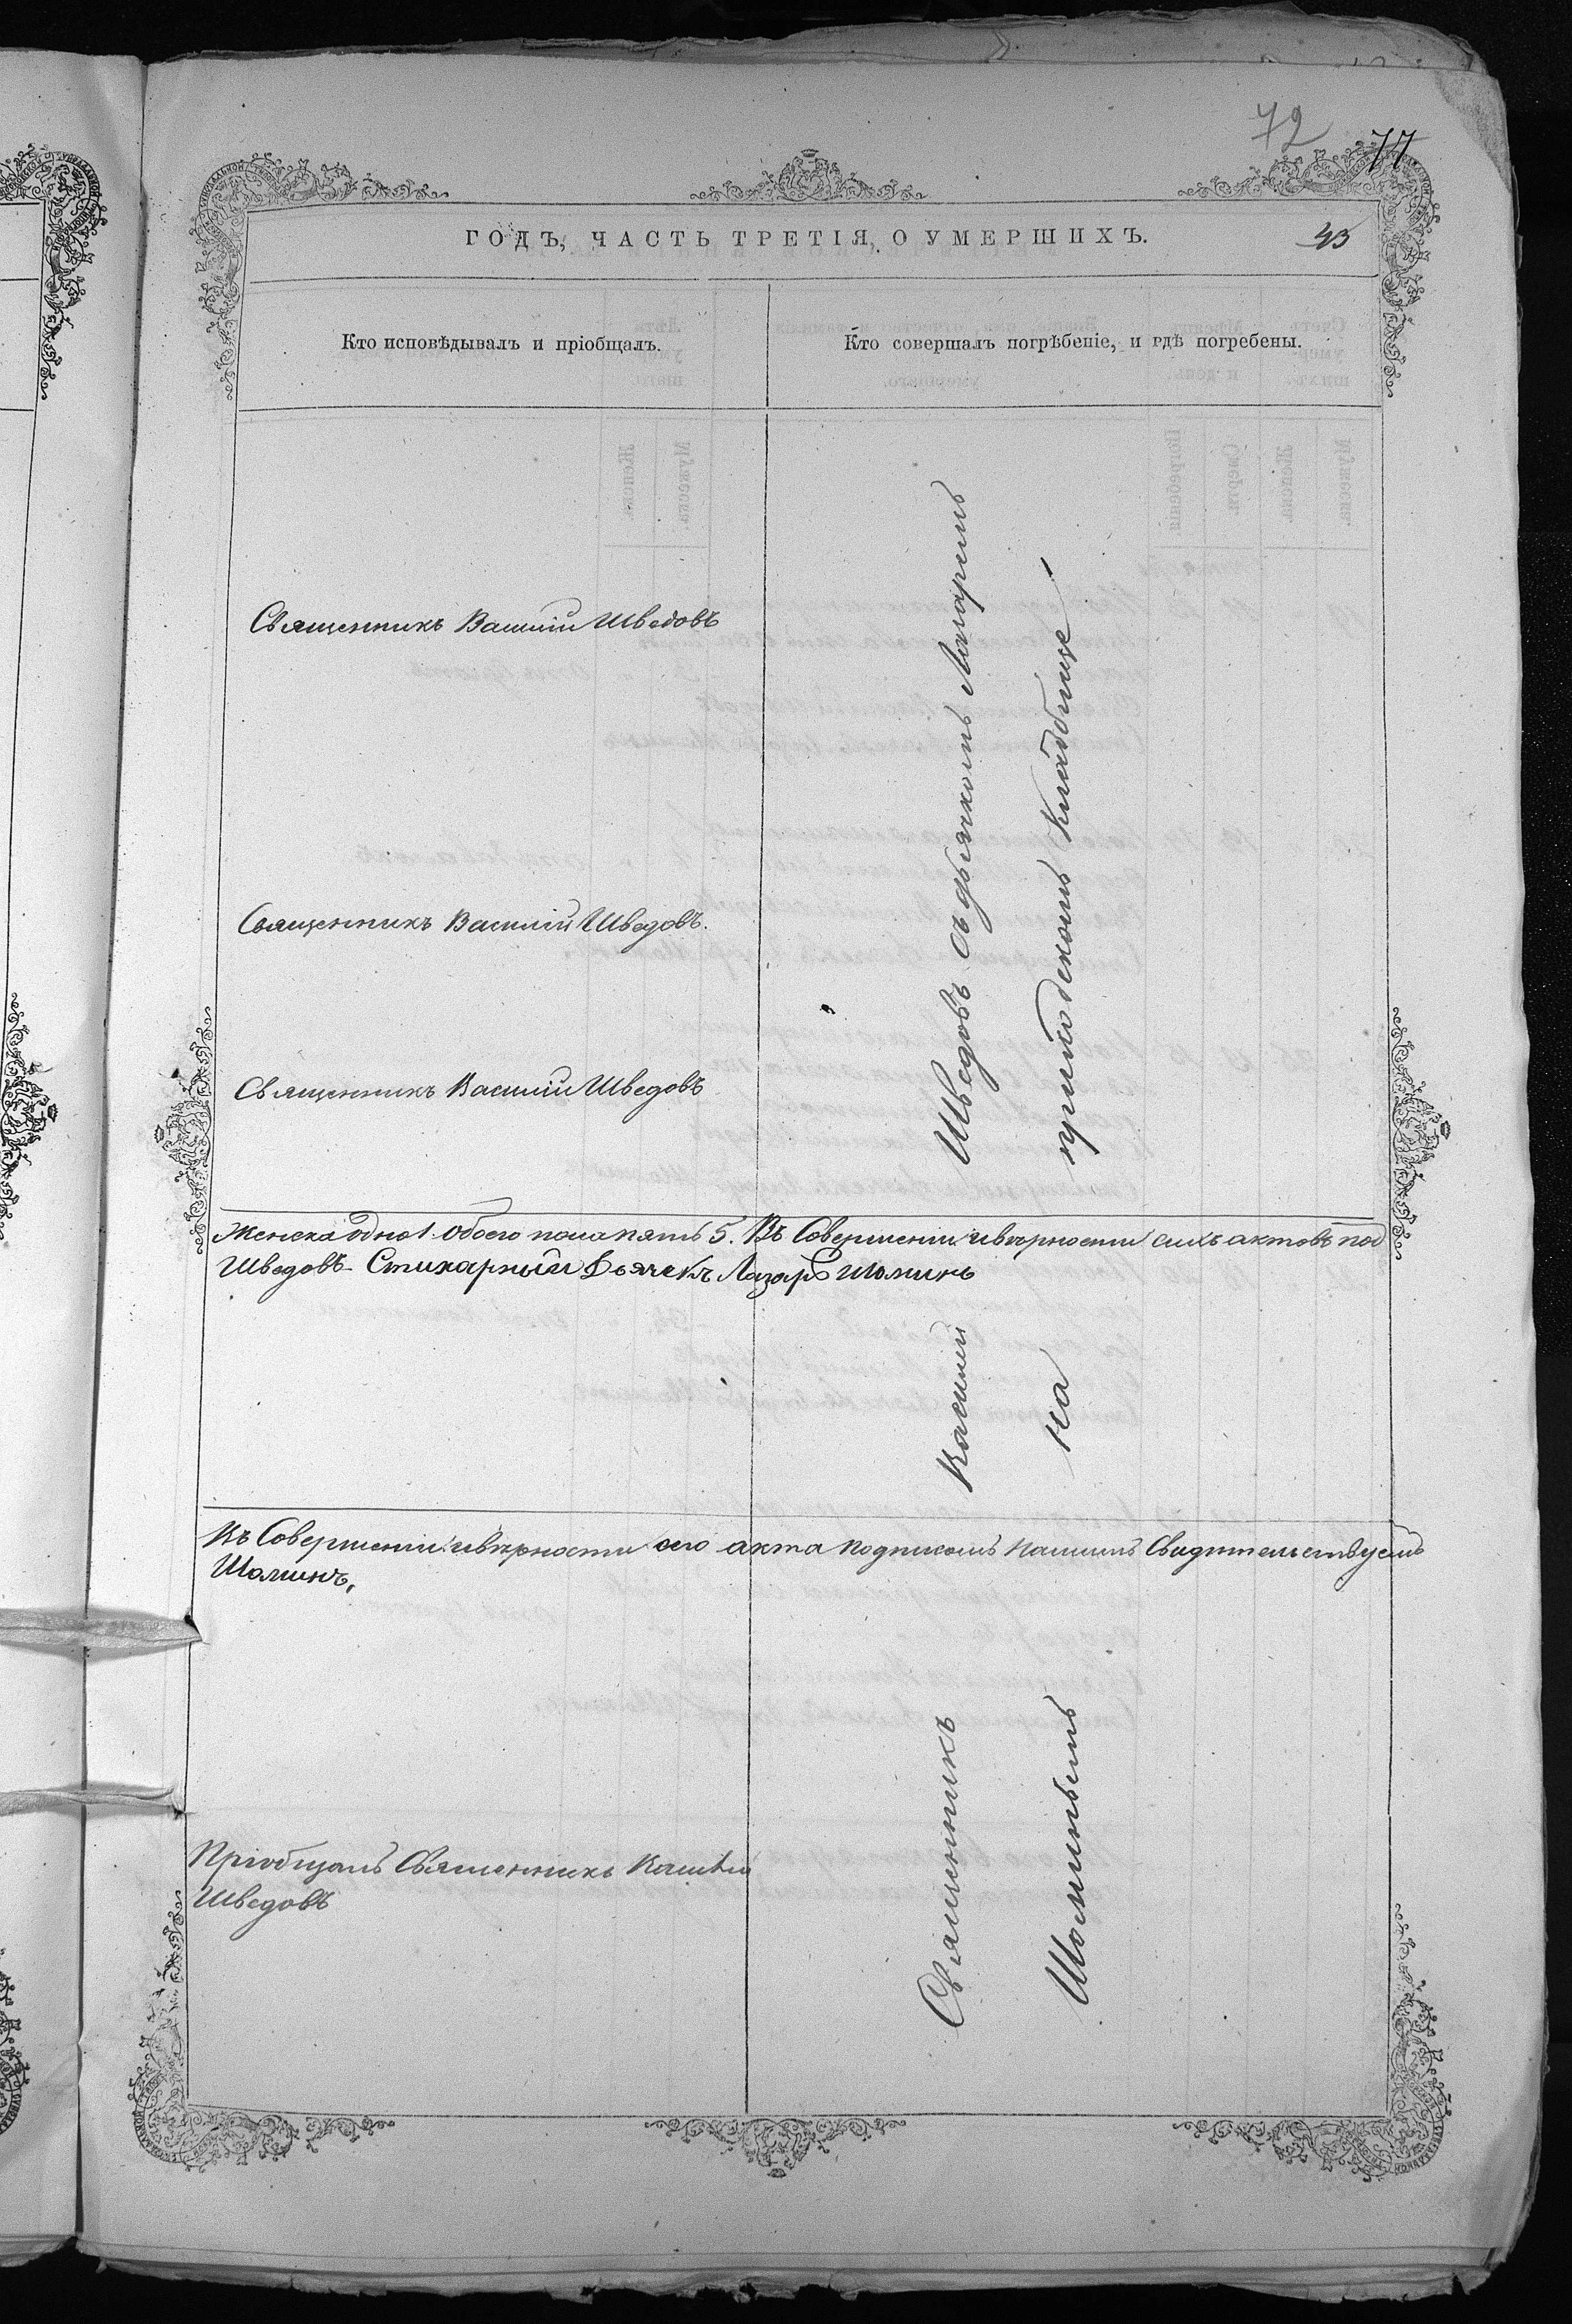 72
77
ГОДЪ, ЧАСТЬ ТРЕТІЯ, О УМЕРШИХЪ.
43
Кто исповѣдывалъ и пріобщалъ.
Кто совершалъ погрѣбеніе, и гдѣ погребены.
Священникъ Василій Шведовъ
Священникъ Василій Шведовъ.
Священникъ Василій Шведовъ
Женска одно 1. обоего пола пять 5. Въ Совершеніи и вѣрности сихъ актовъ под
Шведовъ – Стихарный Дьячекъ Лазарь Шоминъ
Въ Совершеніи и вѣрности сего акта подписомъ нашимъ Свидѣтельствуемъ
Шоминъ,
Пріобщалъ Священникъ Василій
Шведовъ
Священникъ Василій Шведовъ съ дьячкомъ Лазаремъ
Шоминымъ на приходскомъ кладбище